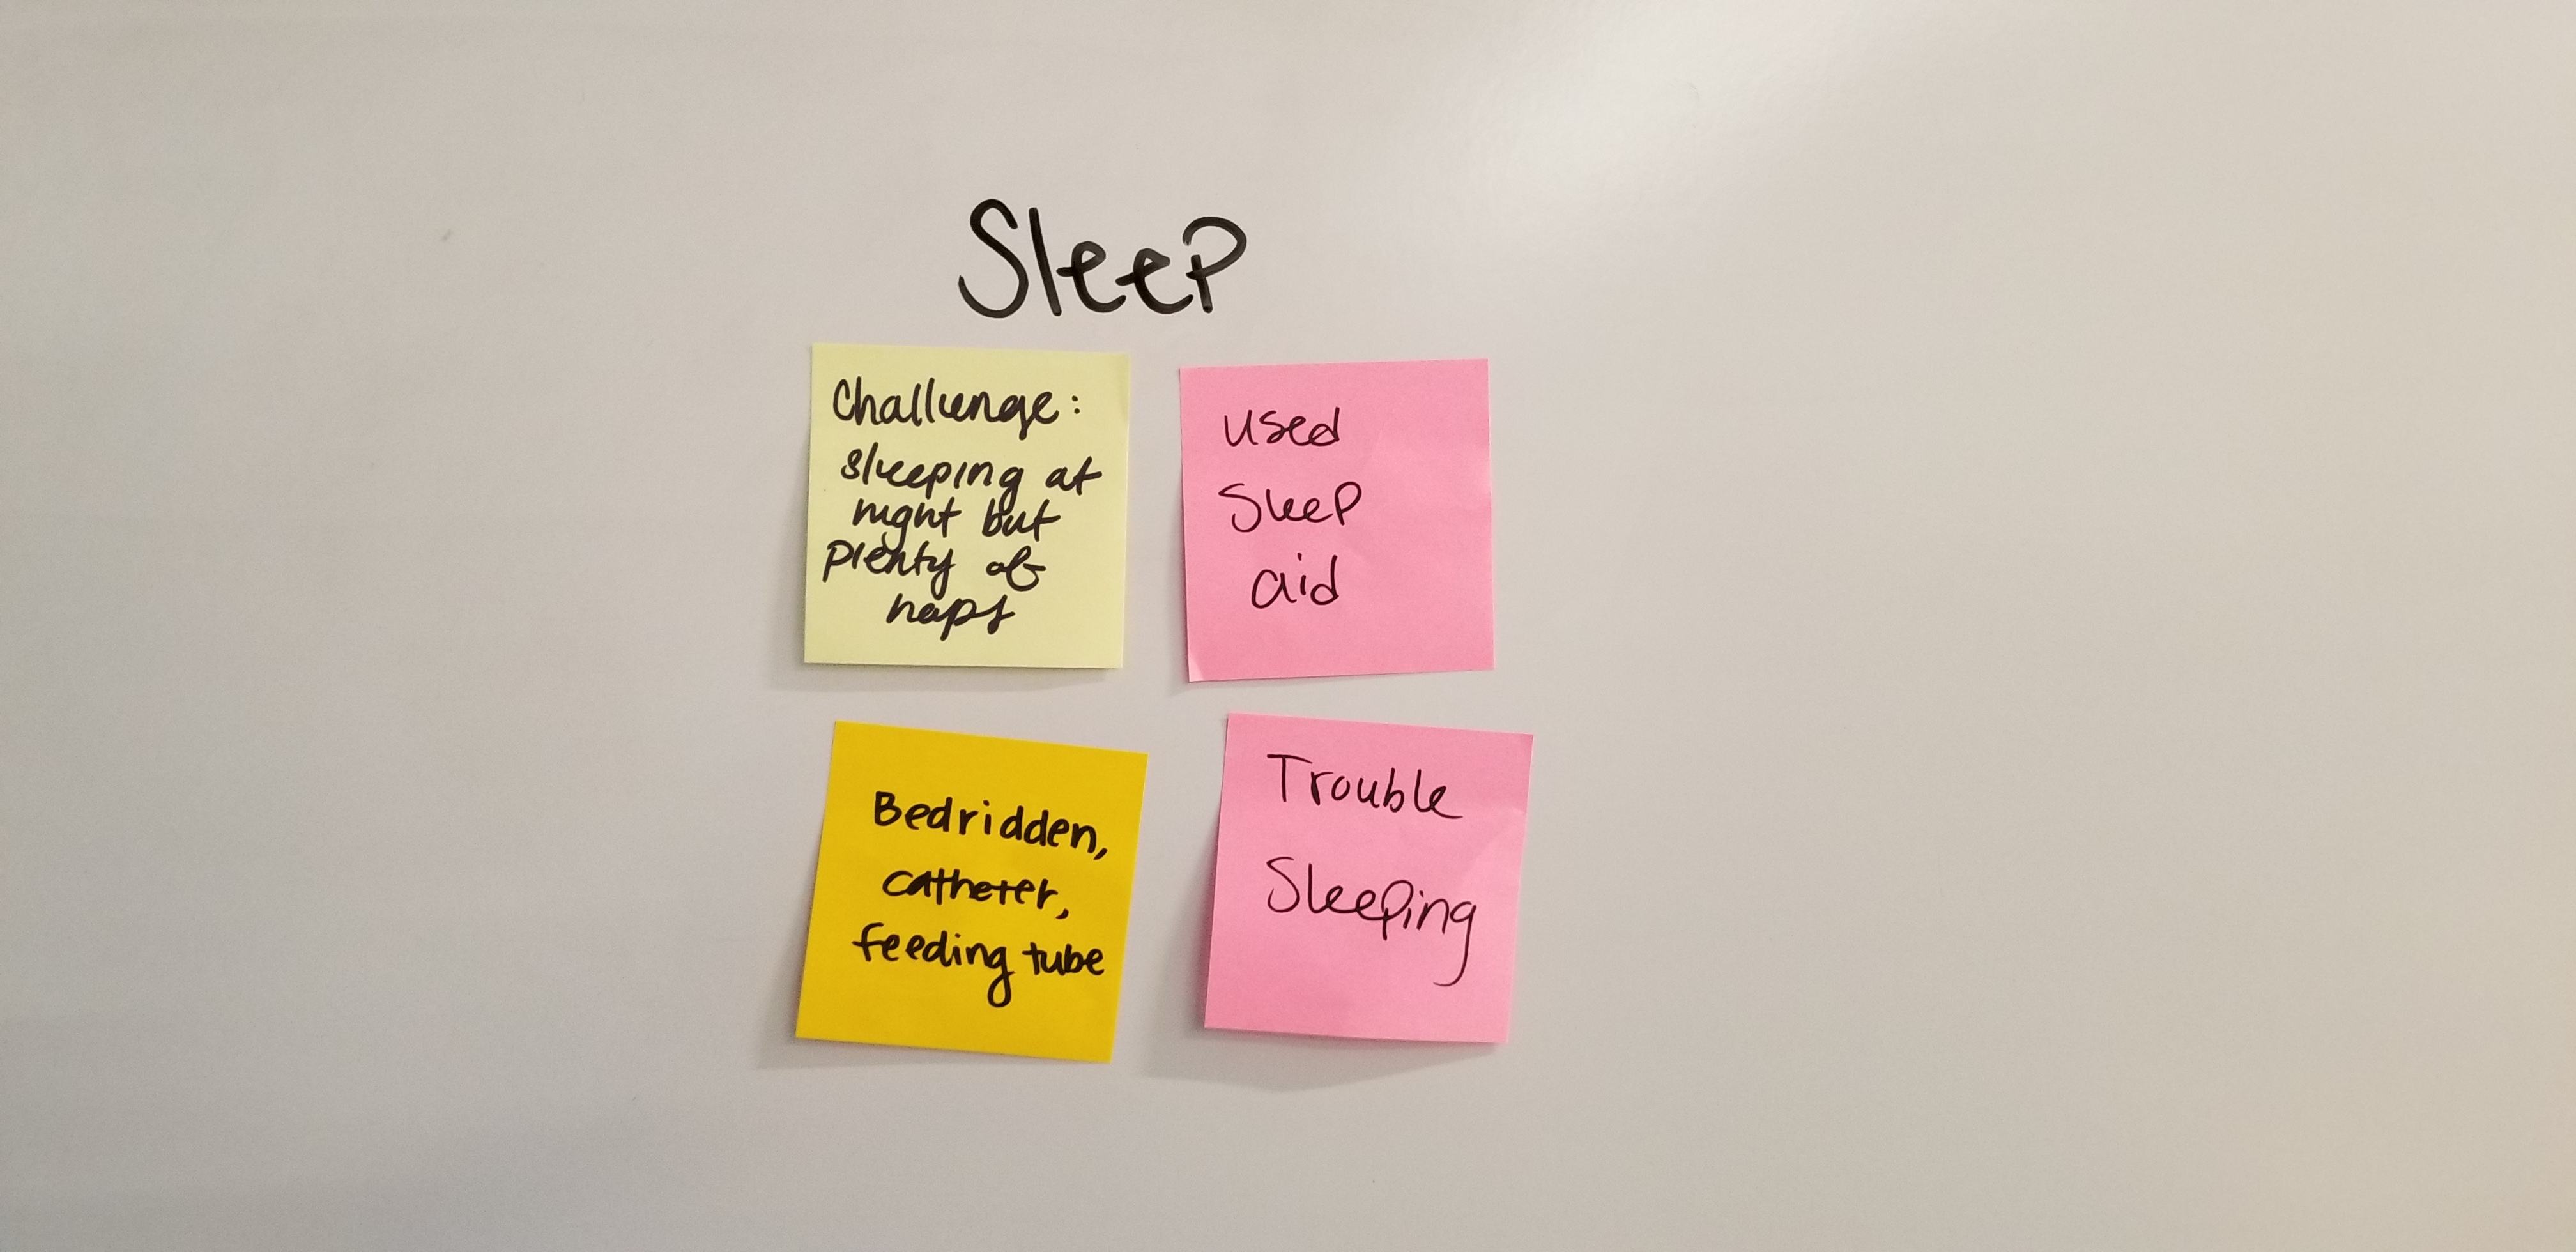 Sleep
Challenge:
sleeping at
night but
plenty of
naps
used
Sleep
aid
Bedridden,
catheter,
feeding tube
Trouble
Sleeping